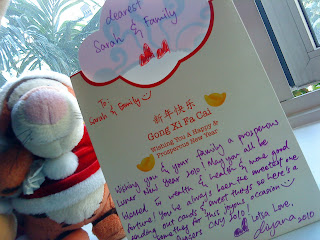 dearest
Sarah & Family
To:
Sarah & Family
新年快乐
Gong Xi Fa Cai
Wishing You A Happy &
Prosperous New Year
Wishing you & your family a prosperous
lunar new year 2010! May you all be
blessed in health & wealth & more good
fortune! You've always been the sweetest one
sending out cards & sweet things so here's a
something this joyous occasion
2010!
Lotsa Love,
2010